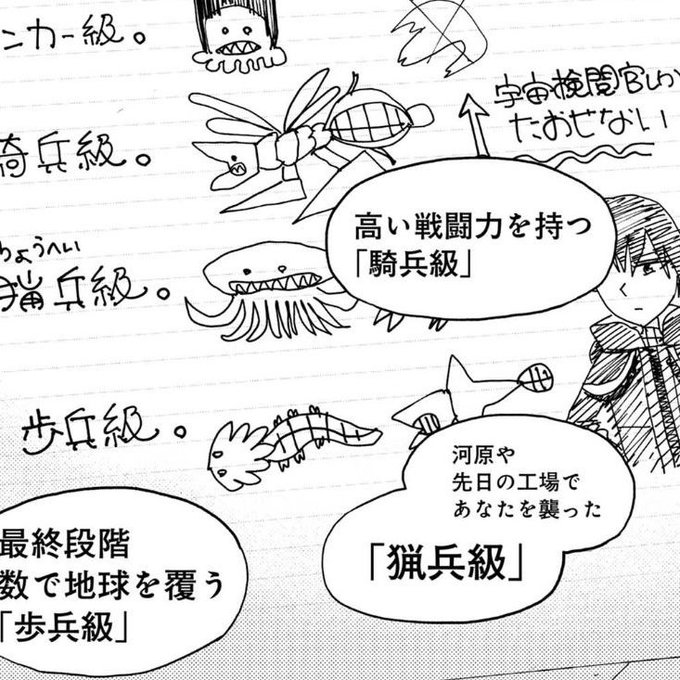 ンカー級。
宇宙検閲官しか
たおせない
騎兵級。
高い戦闘力を持つ
「騎兵級」
りょうへい
猟兵級。
歩兵級。
河原や
先日の工場で
あなたを襲った
「猟兵級」
最終段階
数で地球を覆う
「歩兵級」